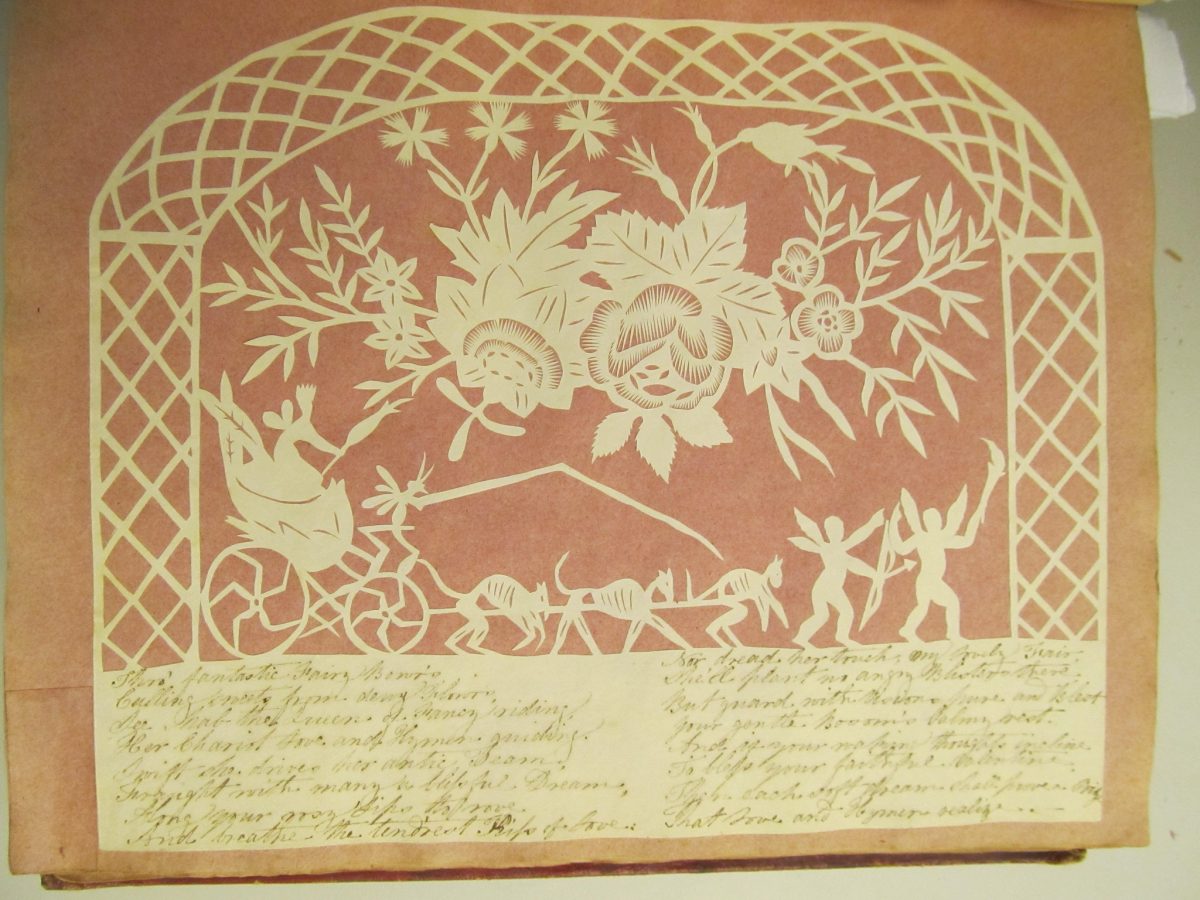 Thro' fantastic Fairy Bow'rs,
Culling sweets from dewy
See that the Queen of Fancy riding
Her Chariot Love and Hymen guiding.
Swift she drives her antic Team,
Fraught with many a blissful Dream,
your rosy lips to prove
And breathe the tendrest Kiss of Love.
Nor dread her touch, my lovely Fair.
She'll plant no angry Blisters there
But guard with Visions pure and blest
Your gentle Bosom's balmy rest.
And if your waking thoughts incline
To bless your faithful Valentine
Then each soft Dream shall prove a
That Love and Hymen realize